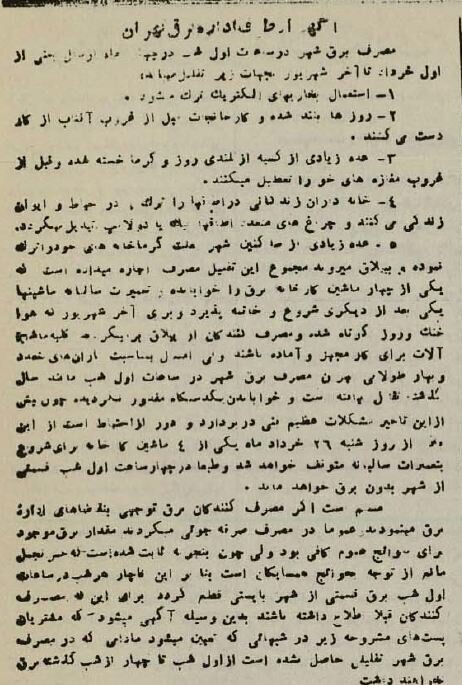 آگهی از طرف اداره برق تهران
مصرف برق شهر در ساعات اول شب در چهار ماه از سال یعنی از
اول خرداد تا آخر شهریور بجهات زیر تقلیل مییابد
۱ـ استعمال بخاریهای الکتریک ترک میشود .
۲ـ روز ها بلند شده و کارخانجات قبل از غروب آفتاب از کار
دست می کشند .
۳ـ عده زیادی از کسبه از بلندی روز و گرما خسته شده و قبل از
غروب مغازه های خود را تعطیل میکنند .
۴ـ خانه داران زندگانی در اطاقها را ترک و در حیاط و ایوان
زندگی می کنند و چراغ های متعدد اطاقها بیک یا دو لامپ تبدیل میگردد.
۵ـ عده زیادی از ساکنین شهر بعلت گرما خانه های خود را ترک
نموده و به ییلاق میروند مجموع این تقلیل مصرف اجازه میداده است که
یکی از چهار ماشین کارخانه برق را خوابانده و تعمیرات سالیانه ماشینها
یکی بعد از دیگری شروع و خاتمه پذیرد و برای آخر شهریور که هوا
خنک و روز کوتاه شده و مصرف کنندگان از ییلاق بر میگردند کلیه ماشین
آلات برای کار مجهز و آماده باشند ولی امسال بمناسبت بارانهای ممتد
و بهار طولانی تهران مصرف برق شهر در ساعات اول شب مانند سال
گذشته تقلیل نیافته است و خواباندن یکدستگاه مقدور نگردیده چون بیش
از این تاخیر مشکلات عظیم فنی در بر دارد و دور از احتیاط است از این
از روز شنبه ۲۶ خرداد ماه یکی از ۴ ماشین کارخانه برای شروع
بتعمیرات سالیانه متوقف خواهد شد و قطعا در چهار ساعت اول شب قسمتی
از شهر بدون برق خواهد ماند .
مسلم است اگر مصرف کنندگان برق توجهی بتقاضاهای اداره
برق مینمودند و عموما در مصرف صرفه جوئی میکردند مقدار برق موجود
برای حوائج عموم کافی بود ولی چون بتجربه ثابت شده است که
مانع از توجه حوائج همسایگان است بنا بر این ناچار هر شب در ساعات
اول شب برق قسمتی از شهر بایستی قطع گردد برای این که مصرف
کنندگان قبلا اطلاع داشته باشند بدین وسیله آگهی میشود که مشترکان
پستهای مشروحه زیر در شبهائی که تعیین میشود مادامی که در مصرف
برق شهر تقلیلی حاصل نشده است از اول شب تا چهار از شب گذشته برق
نخواهند داشت